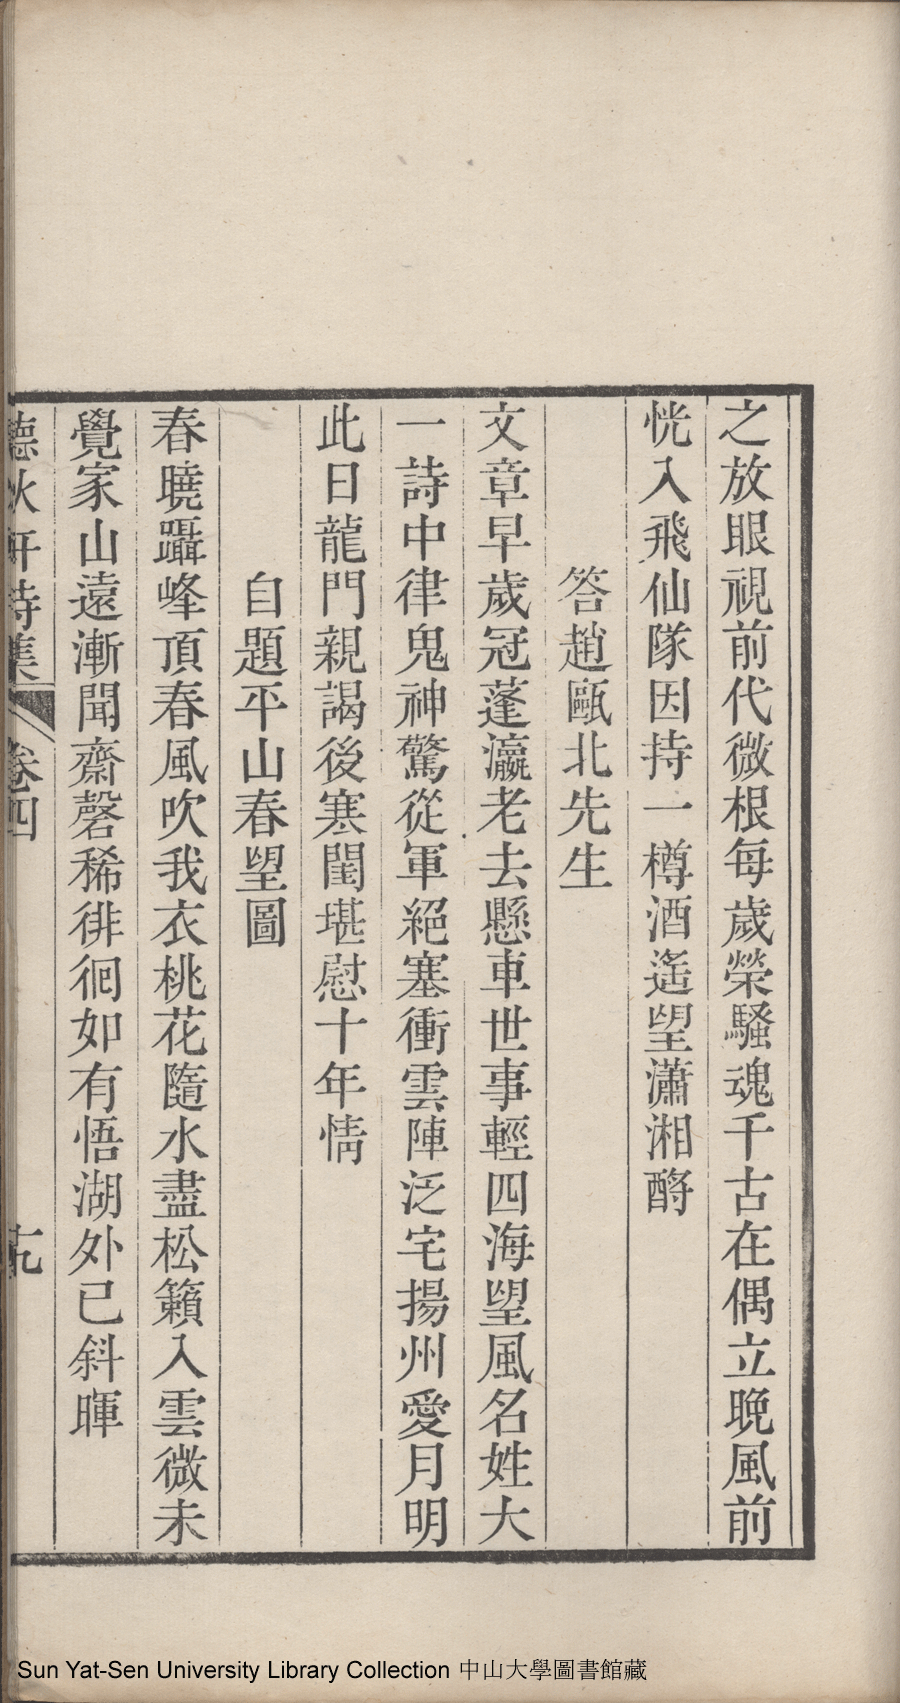 之放眼視前代微根每歲榮騷魂千古在偶立晚風前
恍入飛仙隊因持一樽酒遙望瀟湘酹
答趙甌北先生
文章早歲冠蓬瀛老去懸車世事輕四海望風名姓大
一詩中律鬼神驚從軍絕塞衝雲陣泛宅揚州愛月明
此日龍門親謁後寒閨堪慰十年情
自題平山春望圖
春曉躡峰頂春風吹我衣桃花隨水盡松籟入雲微未
覺家山遠漸聞齋磬稀徘徊如有悟湖外已斜暉
聽秋軒詩集 卷四 十九
Sun Yat-Sen University Library Collection 中山大學圖書館藏